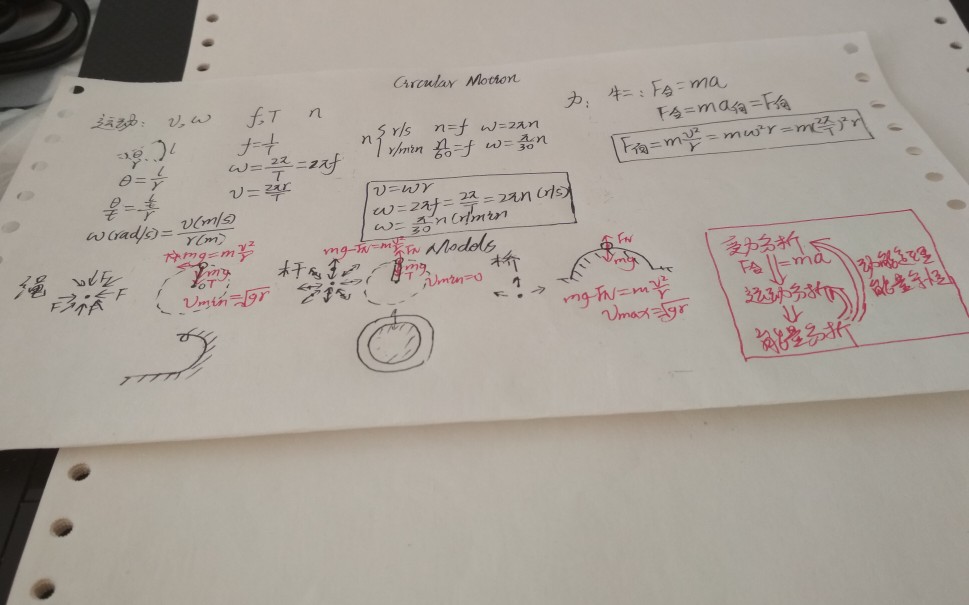 Circular Motion
运动: v, ω f, T n
θ r l
θ = l/r
θ/t = l/t/r
ω(rad/s) = v(m/s)/r(m)
f = 1/T
ω = 2π/T = 2πf
v = 2πr/T
n { r/s n = f ω = 2πn
r/min n/60 = f ω = π/30 n
v = ωr
ω = 2πf = 2π/T = 2πn (r/s)
ω = π/30 n (r/min)
力: 牛二: F合 = ma
F合 = ma向 = F向
F向 = m v²/r = mω²r = m(2π/T)²r
Models
绳 F F F
mg = m v²/r
mg
T
vmin = √gr
杆
mg-FN = m v²/r
FN
mg
T
vmin = 0
桥
FN
mg
mg-FN = m v²/r
vmax = √gr
受力分析
F合 = ma
运动分析
能量分析
动能定理
能量守恒